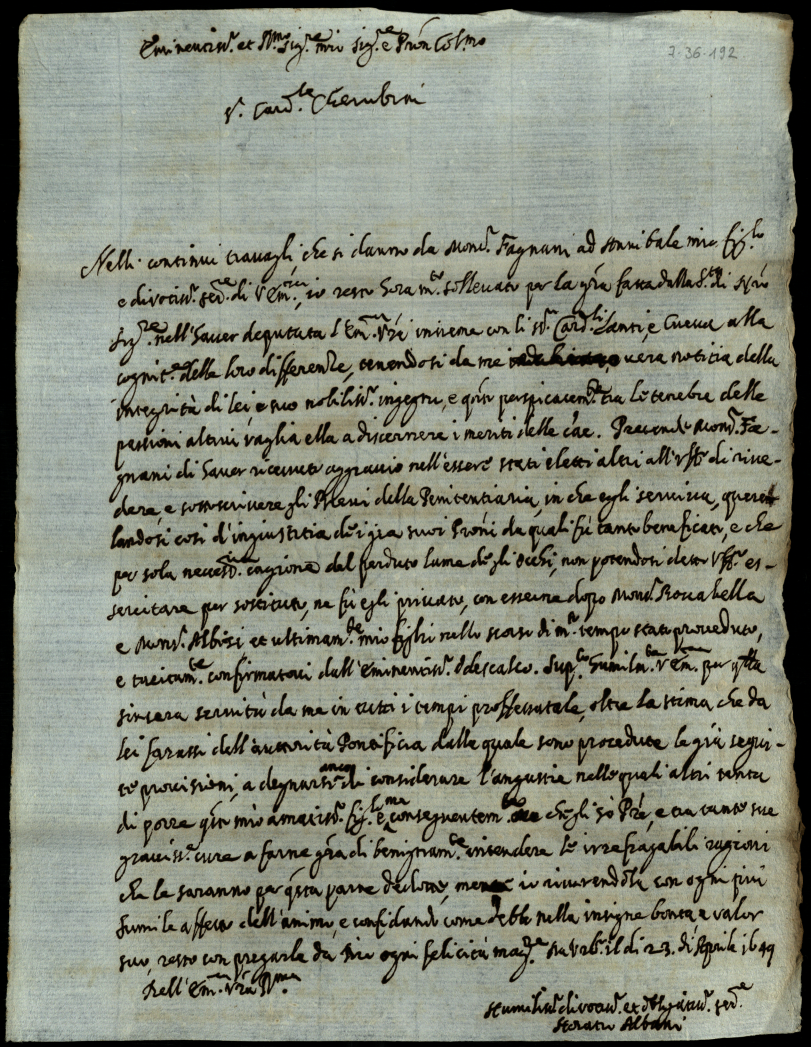 Eminentiss.r et R.mo Sig.re mio Sig.re e Pron Col.mo
7-36-192
S.r Card.le Cherubini
Nelli continui travagli, che si danno da Mons.r Fagnani ad Annibale mio fig.lo
e divotiss.o ser.re di V Em.za, io resto hora m.to sollevato per la gra fatta dalla S.tà di Nro
Sig.re nell'haver deputata l'Em.za Vra insieme con li SS.ri Card.li Lanti, e Cueva alla
cognit.e delle loro differenze, tenendosi da me vera notitia della
integrità di lei, e suo nobiliss.o ingegno, e q.to perspicacem.te tra le tenebre delle
passioni altrui vaglia ella a discernere i meriti delle cae. Pretende Mons.r Fa-
gnani di haver ricevuto aggravio nell'essere stati eletti altri all'Uff.o di rive-
dere, e sottoscrivere gli Brevi della Penitentiaria, in che egli serviva, quere-
landosi così d'ingiustitia de i gia suoi Proni da quali fu tanto beneficato, e che
per sola necess.ria cagione del perduto lume de gli occhi, non potendosi detto Uff.o es-
sercitare per sostituto, ne fù egli privato, con esserne dopo Mons.r Roccabella
e Mons.r Albisi et ultimam.te mio figlio nello scorso di m.to tempo stati proveduto,
e tacitam.te confirmatovi dall'Eminentiss.o Odescalco. Sup.co humilm.te V Em.za per q.lla
sincera servitù da me in tutti i tempi professatale, oltre la stima che da
lei farassi dell'autorità Pontificia dalla quale sono procedute le già segui-
te provisioni, a degnarsi anco di considerare l'angustie nelle quali altri tenta
di porre q.sto mio amatiss.o fig.lo, e conseguentem.te me che gli so Pre, e tra tante sue
graviss.e cure a farne gra di benignam.te intendere le irrefragabili ragioni
che le saranno per q.sta parte dedotte, mentre io riverendola con ogni più
humile affetto dell'animo, e confidando come debbo nella insigne bontà e valor
suo, resto con pregarle da Dio ogni felicità mag.re Da Urb.o il dì 23. di Aprile 1649
Dell'Em.za Vra R.ma
Humiliss.o divotiss.o et obligatiss.o ser.re
Horatio Albani